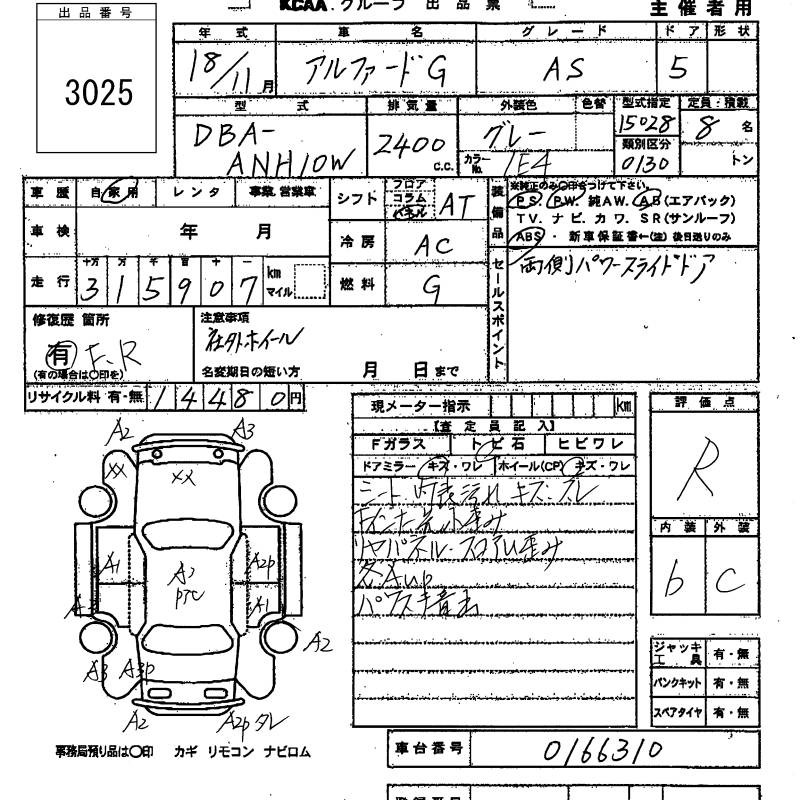 出品番号
3025
KCAA.グループ 出品票
主催者用
年式 車名 グレード ドア 形状
18/11月 アルファードG AS 5
型式 排気量 外装色 色替 型式指定 定員・積載
DBA-ANH10W 2400c.c. グレー カラーNo. 1E4 15028 8名
類別区分 0130 トン
車歴 自家用 レンタ 事業.営業車
車検 年 月
走行 十万 万 千 百 十 一
315907 km マイル
シフト フロア コラム パネル AT
冷房 AC
燃料 G
装備品 ※純正のみ〇印をつけて下さい。
P.S. P.W. 純AW. AB(エアバック)
TV. ナビ. カワ. SR(サンルーフ)
ABS・ 新車保証書←(注)後日送りのみ
セールスポイント 両側パワースライドドア
修復歴 箇所
有 F、R
(有の場合は〇印を)
注意事項
社外ホイール
名変期日の短い方 月 日まで
リサイクル料 有・無 14480円
現メーター指示 km
【査定員記入】
Fガラス トビ石 ヒビワレ
ドアミラー キズ・ワレ ホイール(CP) キズ・ワレ
シート 内装汚れ キズ・スレ
リヤパネル・フロアU歪み
各Aup
評価点
R
内装 外装
b C
ジャッキ工具 有・無
パンクキット 有・無
スペアタイヤ 有・無
A2 A3
XX XX
A1 A2p
A1
A3 A3p A2
A2 A2p
事務局預り品は〇印 カギ リモコン ナビロム
車台番号 0166310